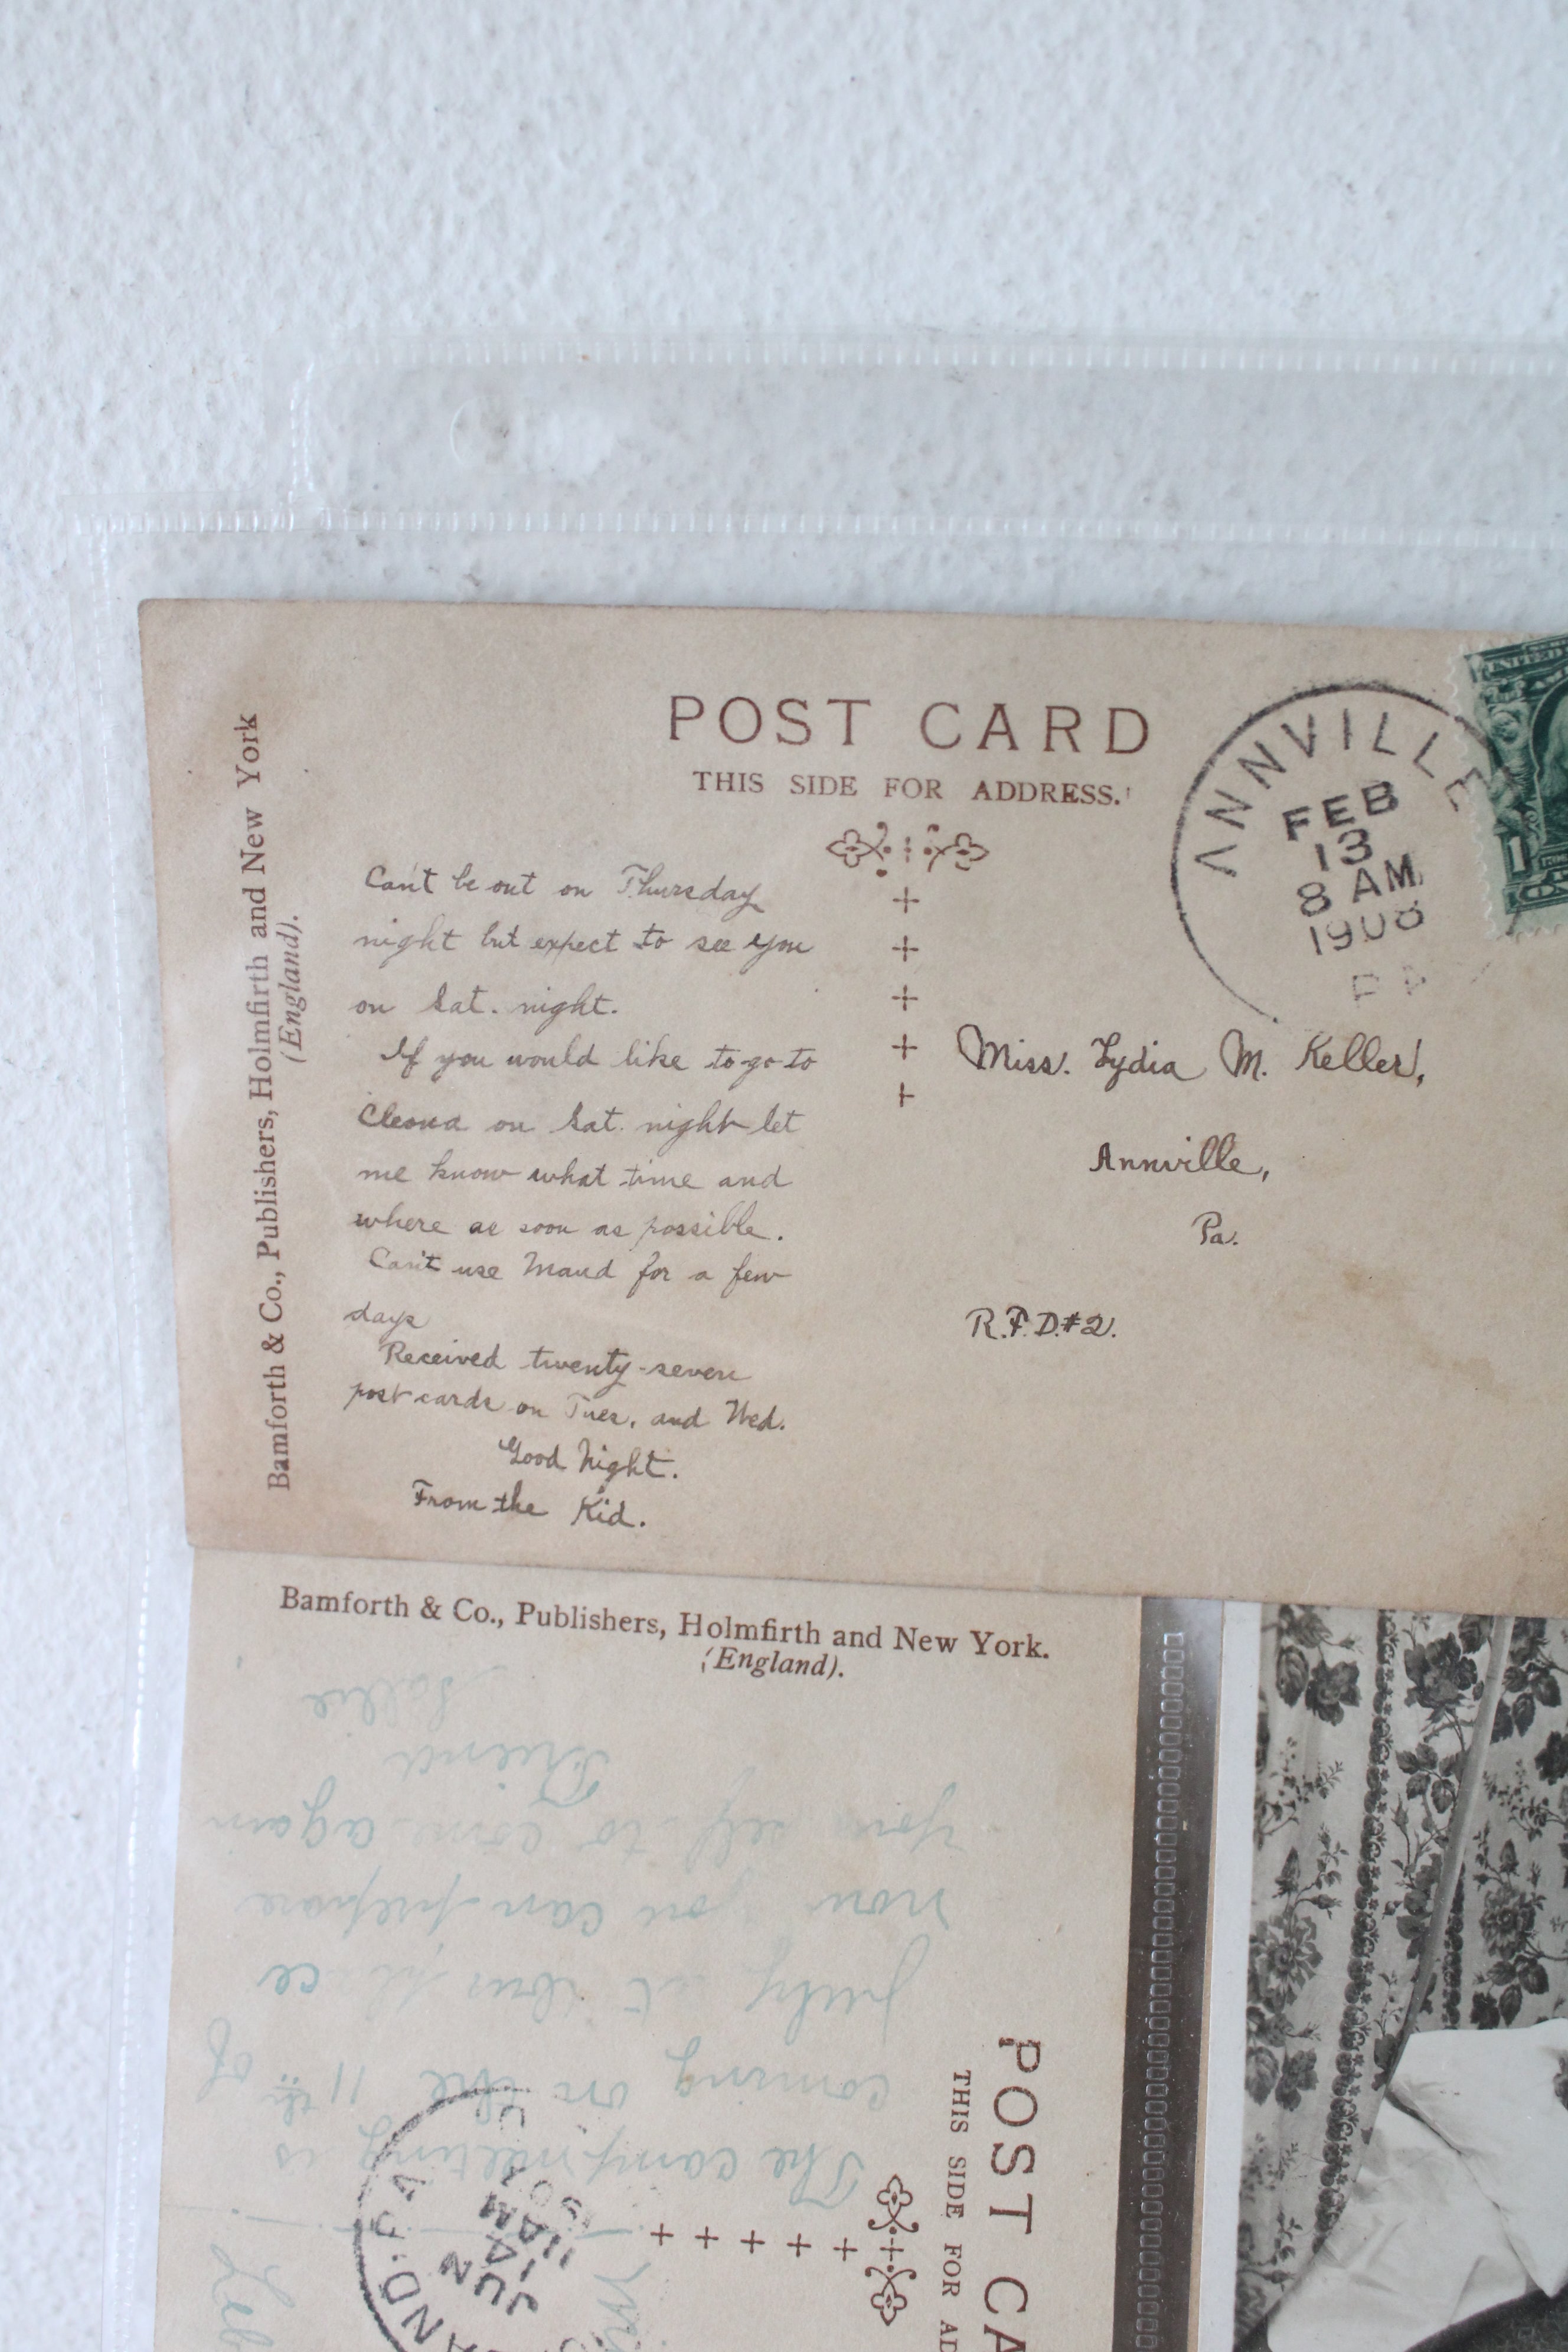 POST CARD
THIS SIDE FOR ADDRESS.
Bamforth & Co., Publishers, Holmfirth and New York
(England).
ANNVILLE
FEB
13
8 AM
1908
PA
Can't be out on Thursday
night but expect to see you
on Sat. night.
If you would like to go to
Cleona on Sat. night let
me know what time and
where as soon as possible.
Can't use Maud for a few
days
Received twenty-seven
post cards on Tues. and Wed.
Good Night.
From the Kid.
Miss. Lydia M. Keller,
Annville,
Pa.
R.F.D.#2.
Bamforth & Co., Publishers, Holmfirth and New York.
(England).
POST CA
THIS SIDE FOR AD
AND. PA
JUN
14
11 AM
The campmeeting is
coming on the 11th of
july at
now you can prepare
your self to com again
Friend
Sallie
Leb